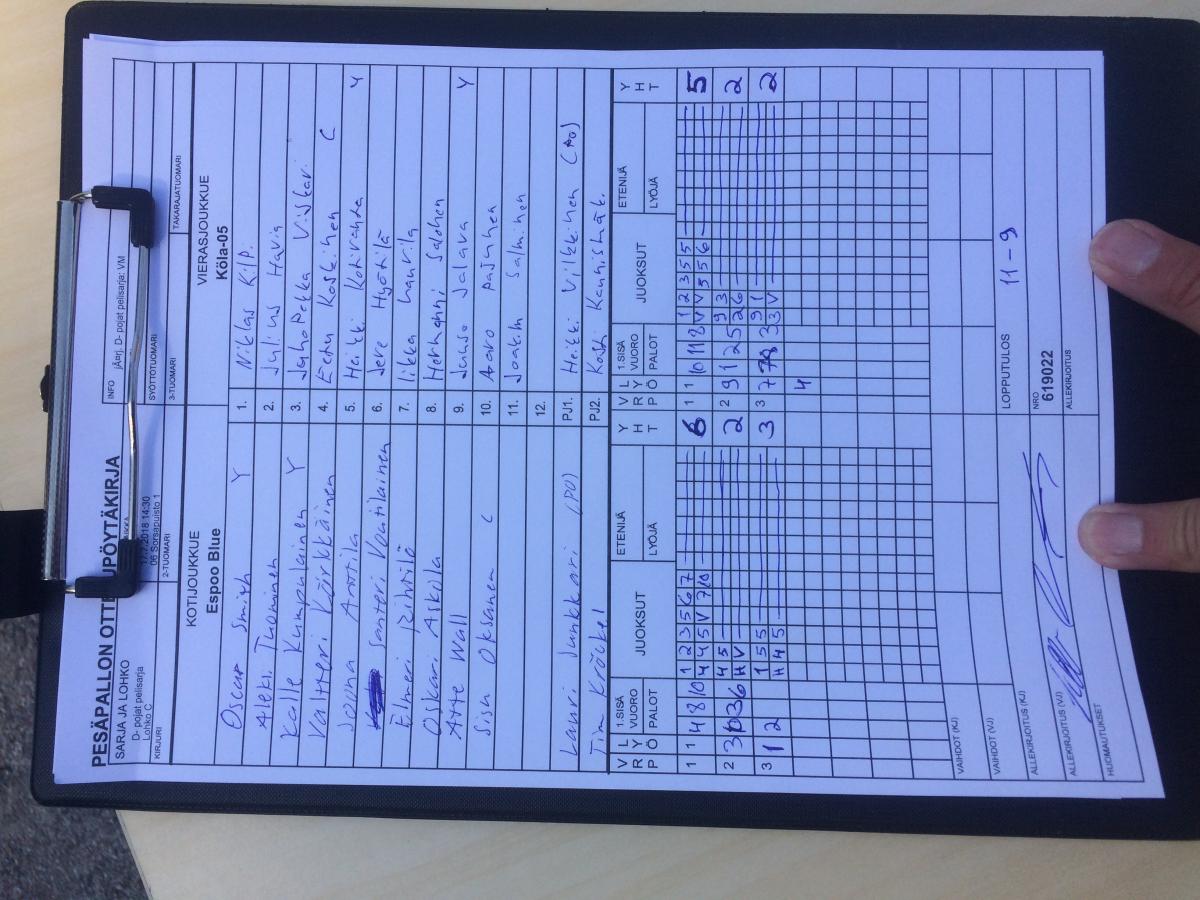 PESÄPALLON OTTE UPÖYTÄKIRJA
SARJA JA LOHKO
D- pojat pelisarja
Lohko C
17.7.2018 14:30
06 Sorsapuisto 1
INFO jÄrj. D- pojat pelisarja: VM
KIRJURI
2-TUOMARI
SYÖTTÖTUOMARI
3-TUOMARI
TAKARAJATUOMARI
KOTIJOUKKUE
Espoo Blue
VIERASJOUKKUE
Köla-05
Oscar Smith Y 1. Niklas Kilp.
Aleksi Tuominen 2. Julius Havia
Kalle Kumpulainen Y 3. JuhoPekka Viskari
Valtteri Körkkäinen 4. Eetu Koskinen C
Joona Anttila 5. Heikki Kotiranta Y
Santeri Voutilainen 6. Jere Hyötilä
Elmeri 7. Iikka
Oskari Askola 8. Hermanni Salonen
Atte Wall 9. Juuso Jalava Y
Sisu Oksanen C 10. Aaro Pajunen
11. Joakim Salminen
12.
Lauri Junkkari (PO) PJ1. Heikki Vilkinen (PO)
Tim PJ2.
V R P L Y Ö 1.SISÄ VUORO PALOT JUOKSUT ETENIJÄ LYÖJÄ Y H T V R P L Y Ö 1.SISÄ VUORO PALOT JUOKSUT ETENIJÄ LYÖJÄ Y H T
1 1 4 8 10 1 2 3 5 6 7 6 1 1 10 11 8 1 2 3 5 5 5
4 4 5 V 7 10 V V 5 5 6
2 3 10 3 6 4 5 2 2 9 1 2 5 9 3 2
H V 2 6
3 1 2 1 5 5 3 3 7 3 9 1 2
H 4 5 3 V
4
VAIHDOT (KJ)
VAIHDOT (VJ)
LOPPUTULOS 11 - 9
ALLEKIRJOITUS (KJ)
NRO
619022
ALLEKIRJOITUS (VJ)
ALLEKIRJOITUS
HUOMAUTUKSET